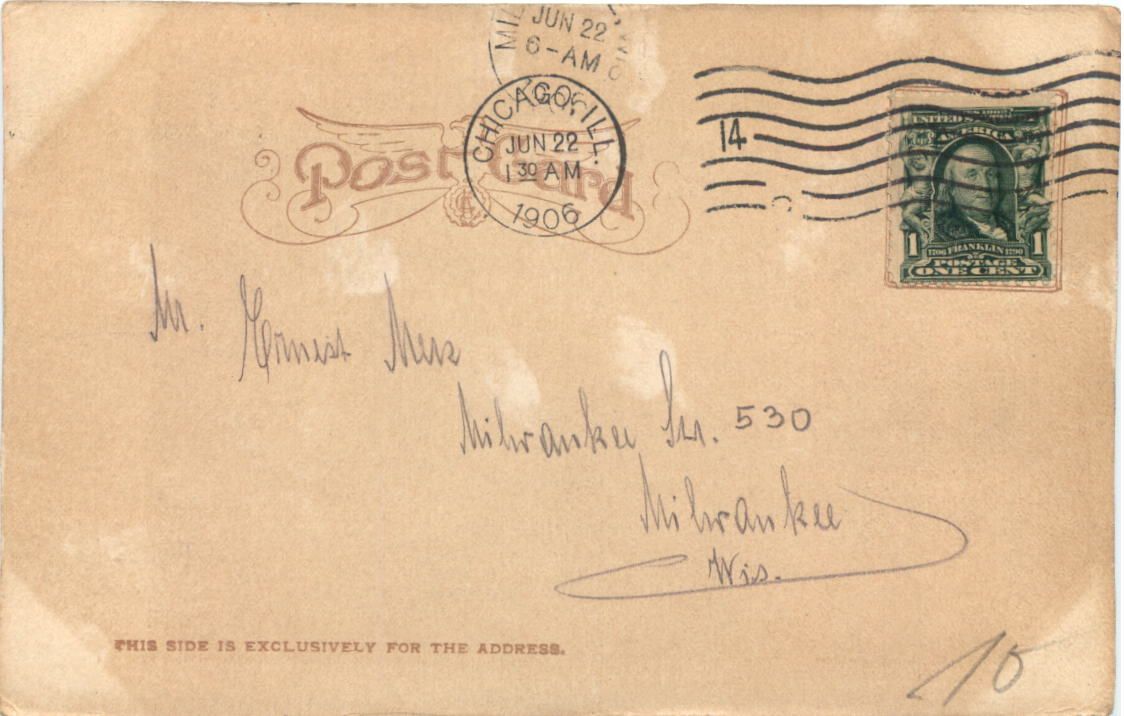 JUN 22
6-AM
CHICAGO, ILL.
JUN 22
1 30 AM
1906
14
Post Card
UNITED STATES OF
AMERICA
1706 FRANKLIN 1790
POSTAGE
1 ONE CENT 1
Mr. Ernest Merz
Milwaukee Str. 530
Milwaukee
Wis.
THIS SIDE IS EXCLUSIVELY FOR THE ADDRESS.
10